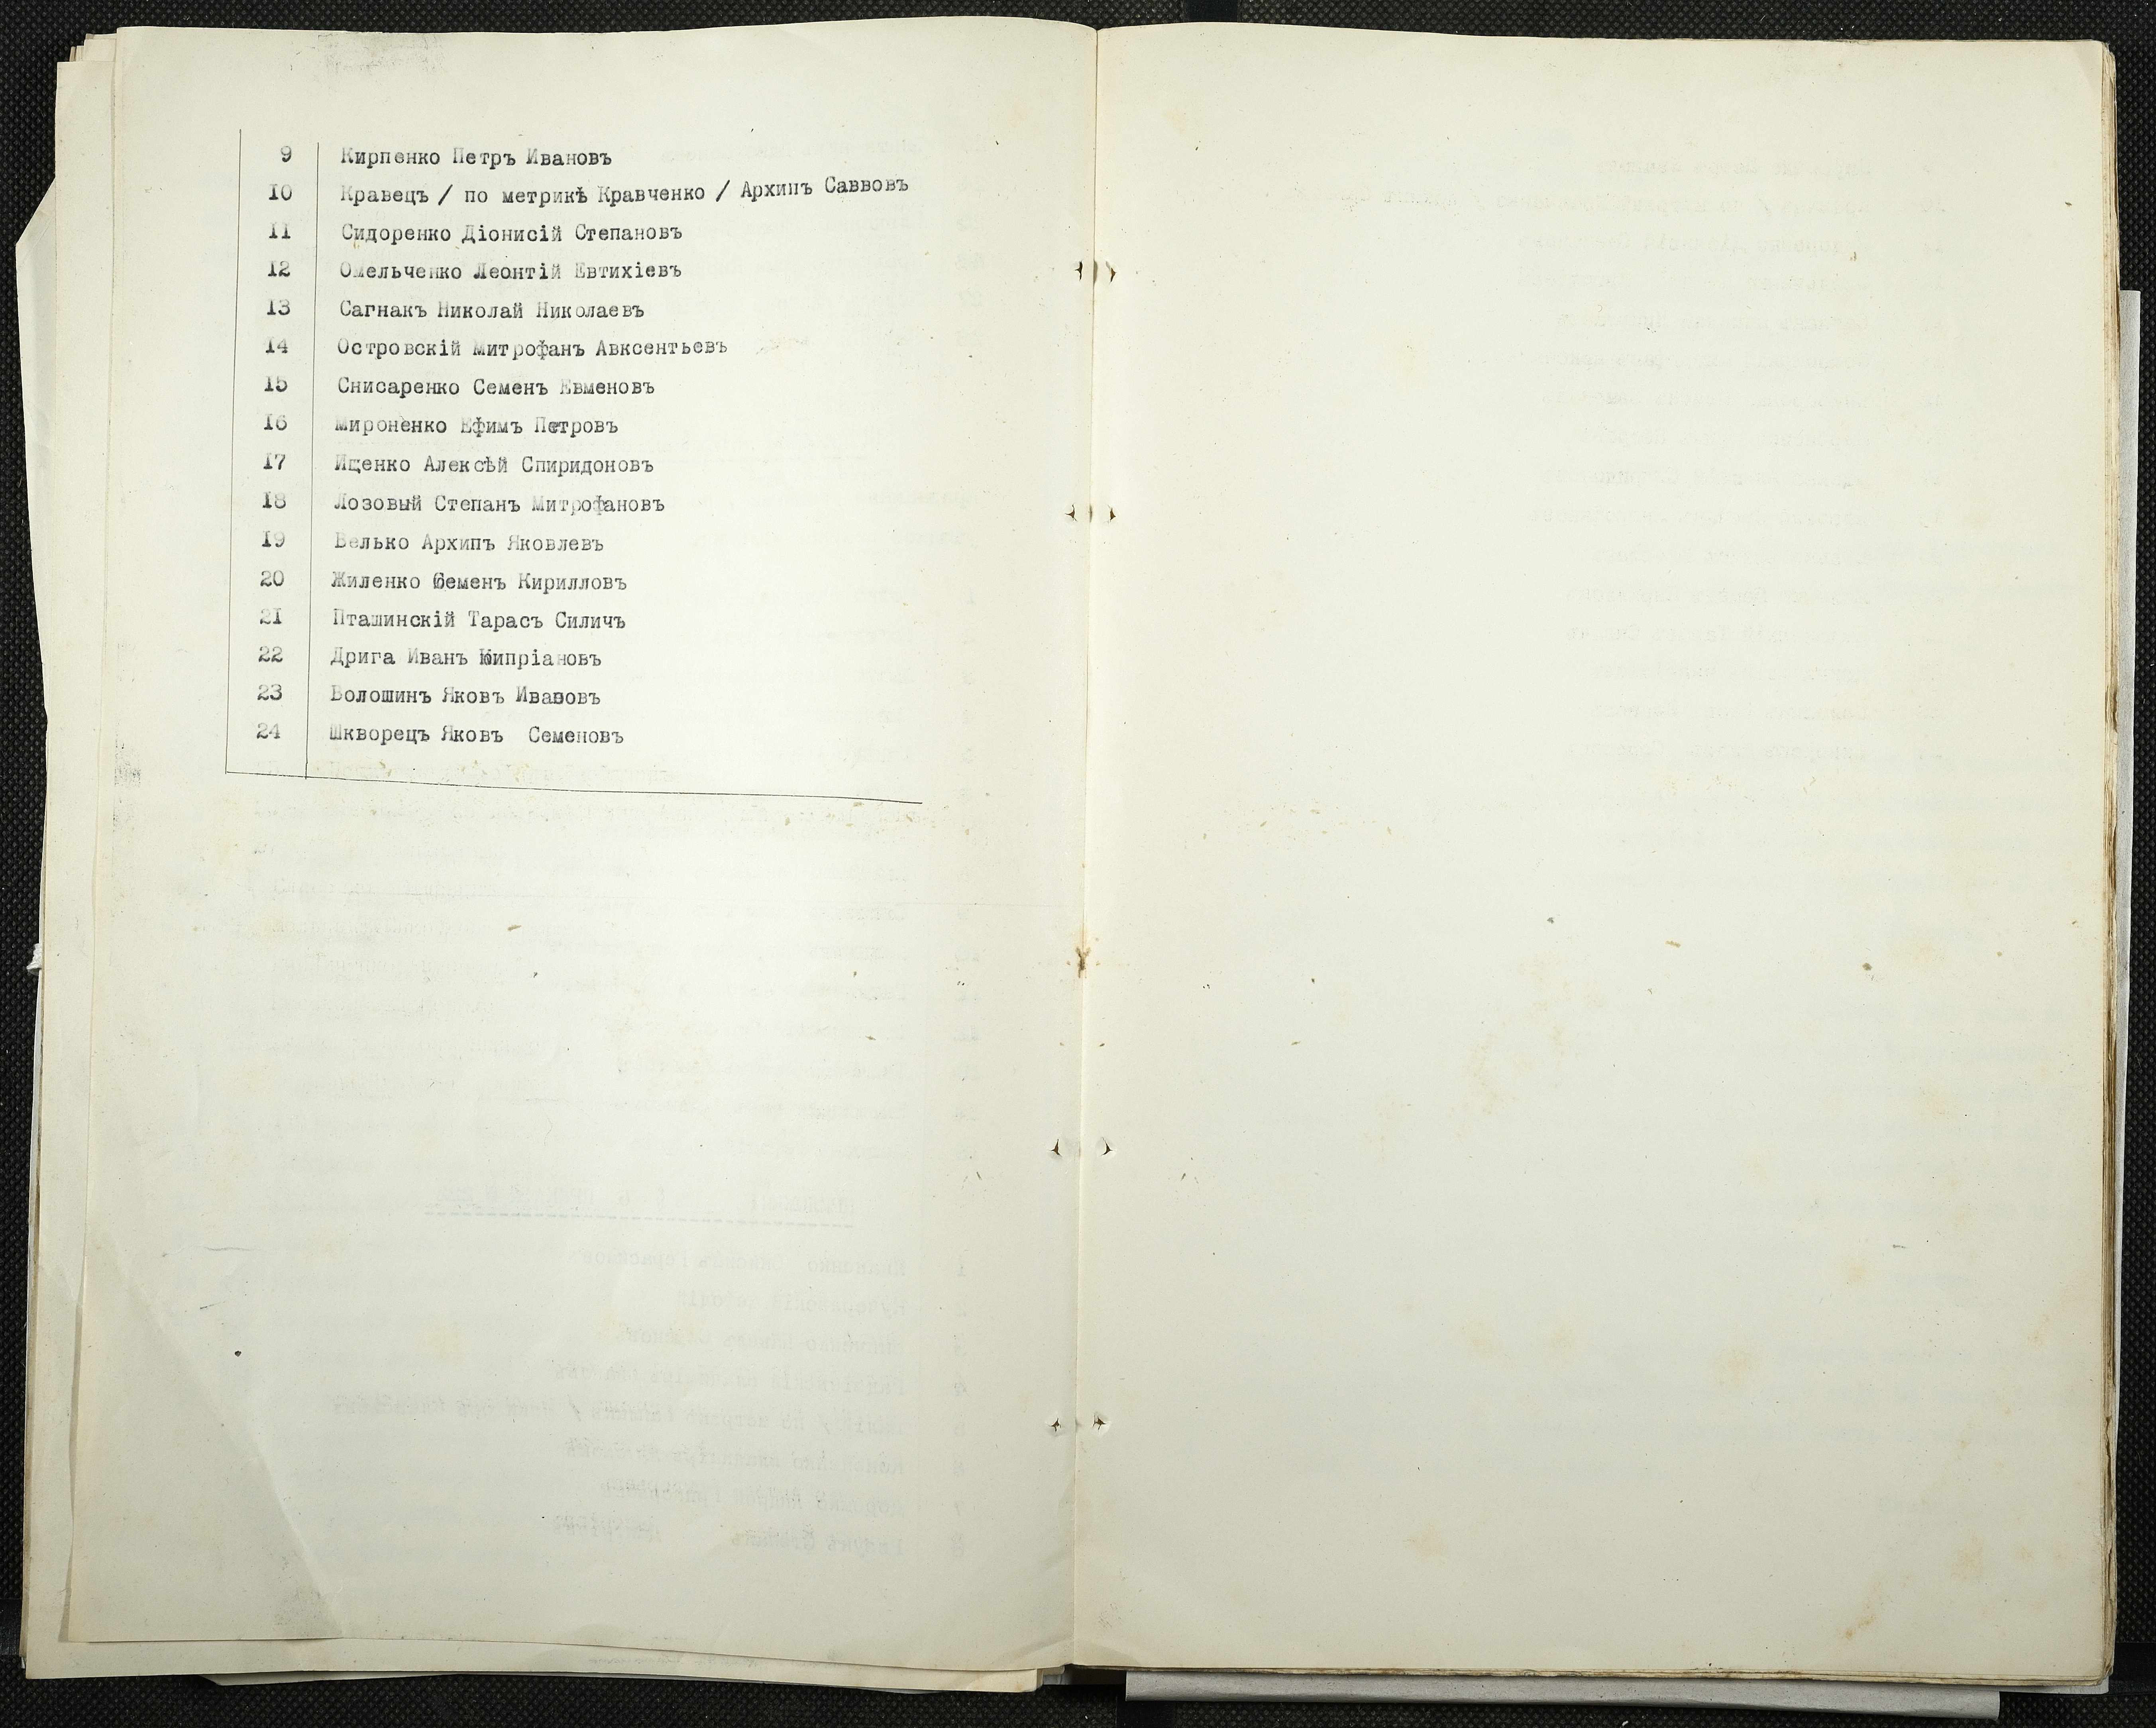 9 Кирпенко Петръ Ивановъ
10 Кравецъ / по метрикѣ Кравченко / Архипъ Саввовъ
11 Сидоренко Діонисій Степановъ
12 Омельченко Леонтій Евтихіевъ
13 Сагнакъ Николай Николаевъ
14 Островскій Митрофанъ Авксентьевъ
15 Снисаренко Семенъ Евменовъ
16 Мироненко Ефимъ Петровъ
17 Ищенко Алексѣй Спиридоновъ
18 Лозовый Степанъ Митрофановъ
19 Велько Архипъ Яковлевъ
20 Жиленко Семенъ Кирилловъ
21 Пташинскій Тарасъ Силичъ
22 Дрига Иванъ Кипріановъ
23 Волошинъ Яковъ Ивановъ
24 Шкворецъ Яковъ Семеновъ